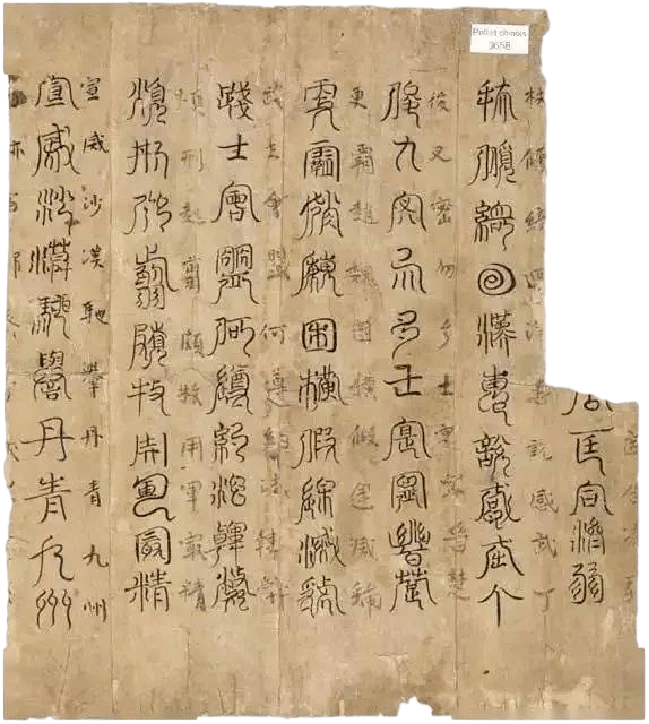 Pelliot chinois
3658
匡合濟弱
公匡合濟弱
扶傾綺迴漢惠說感武丁
扶傾綺迴漢惠說感武丁
俊乂密勿多士寔寧晉楚
俊乂密勿多士寔寧晉楚
更霸趙魏困橫假途滅虢
更霸趙魏困橫假途滅虢
踐土會盟何遵約法韓弊
踐土會盟何遵約法韓弊
煩刑起翦頗牧用軍最精
煩刑起翦頗牧用軍最精
宣威沙漠馳譽丹青九州
宣威沙漠馳譽丹青九州